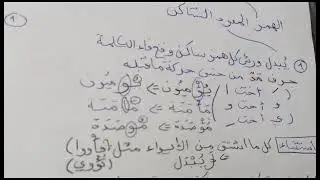 ١
الهمز المفرد الساكن
① يُبدل ورش كل همز ساكن وقع فاء للكلمة
حرف مد من جنس حركة ما قبله
يُؤْمِنُونَ ⇐ يُومِنُونَ
مَأْمَنَهُ ⇐ مَامَنَهُ
مُؤْصَدَةٌ ⇐ مُوصَدَةٌ
استثناء كل ما اشتق من الإيواء مثل (فأووا)
لا يُبدل (تُؤْوي)